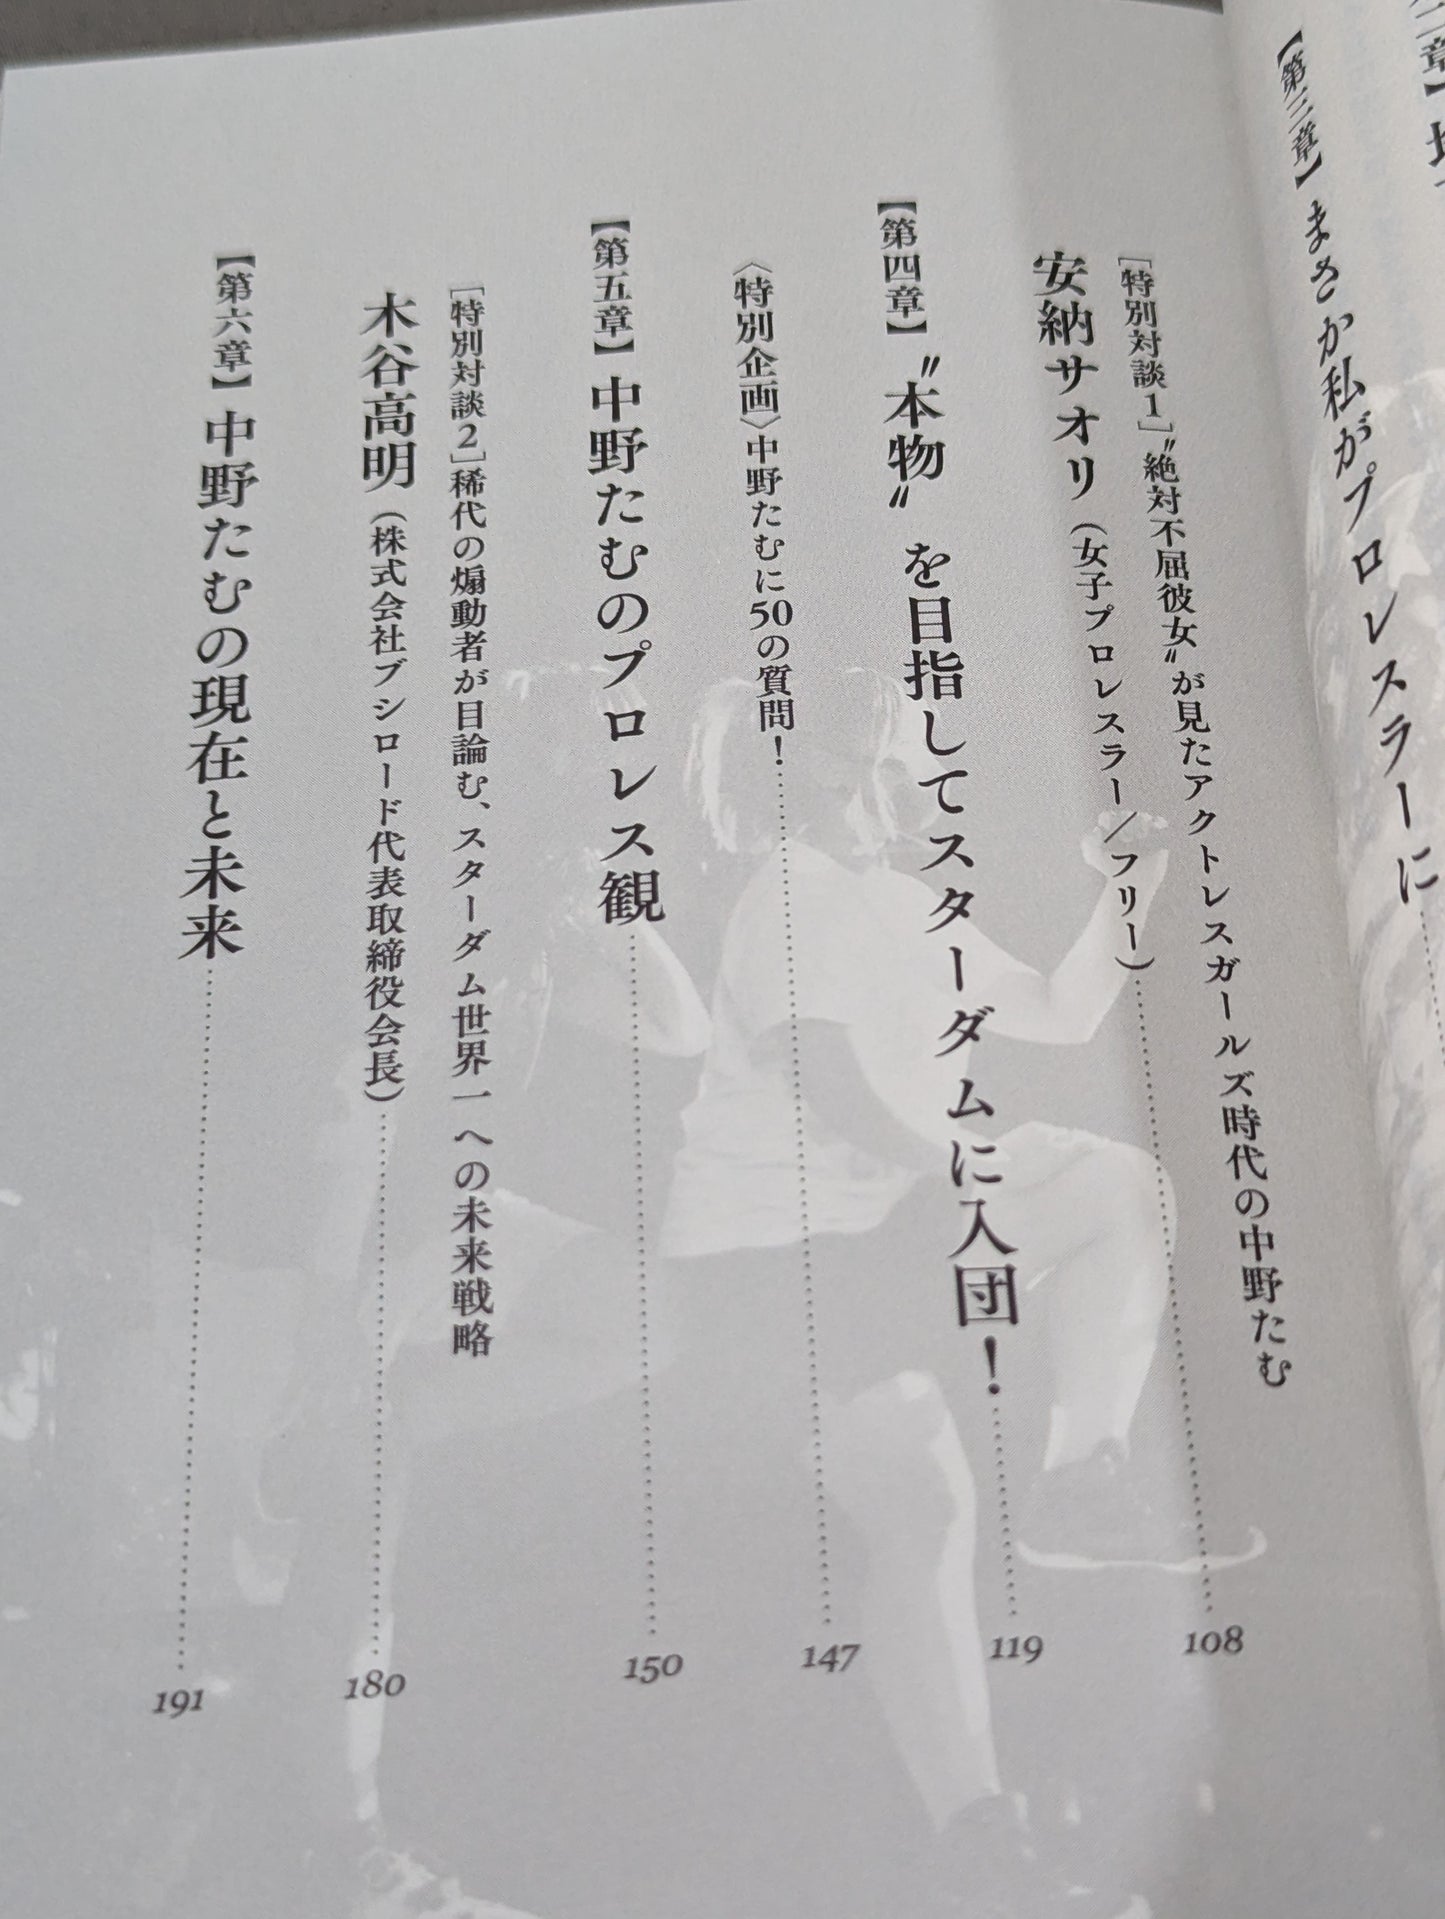 【第三章】まさか私がプロレスラーに
[特別対談1]〝絶対不屈彼女〟が見たアクトレスガールズ時代の中野たむ
安納サオリ（女子プロレスラー／フリー）……108
【第四章】〝本物〟を目指してスターダムに入団！……119
〈特別企画〉中野たむに50の質問！……147
【第五章】中野たむのプロレス観……150
[特別対談2]稀代の煽動者が目論む、スターダム世界一への未来戦略
木谷高明（株式会社ブシロード代表取締役会長）……180
【第六章】中野たむの現在と未来……191